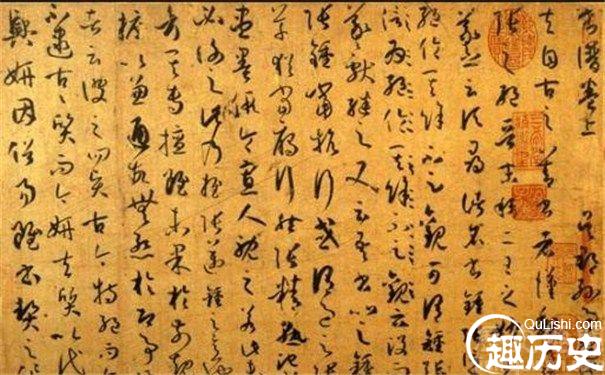 書譜卷上 吳郡孫過
夫自古之善書者漢
張之絕晉末稱二王之妙
羲之云頃尋諸名書鍾
絕倫其餘不足觀可謂鍾張
為絕倫其餘不足觀云沒而
羲獻繼之又云吾書比之鍾
張鍾當抗行或謂過之
草猶當雁行然張精熟池
盡墨假令寡人耽之若此
必謝之此乃推張邁鍾之意
考其專擅雖未果於前規
摭以兼通故無慚於即事
者云彼之四賢古今特絕而今
不逮古古質而今妍夫質以代
興妍因俗易雖書契之作
QuLishi.com
趣历史